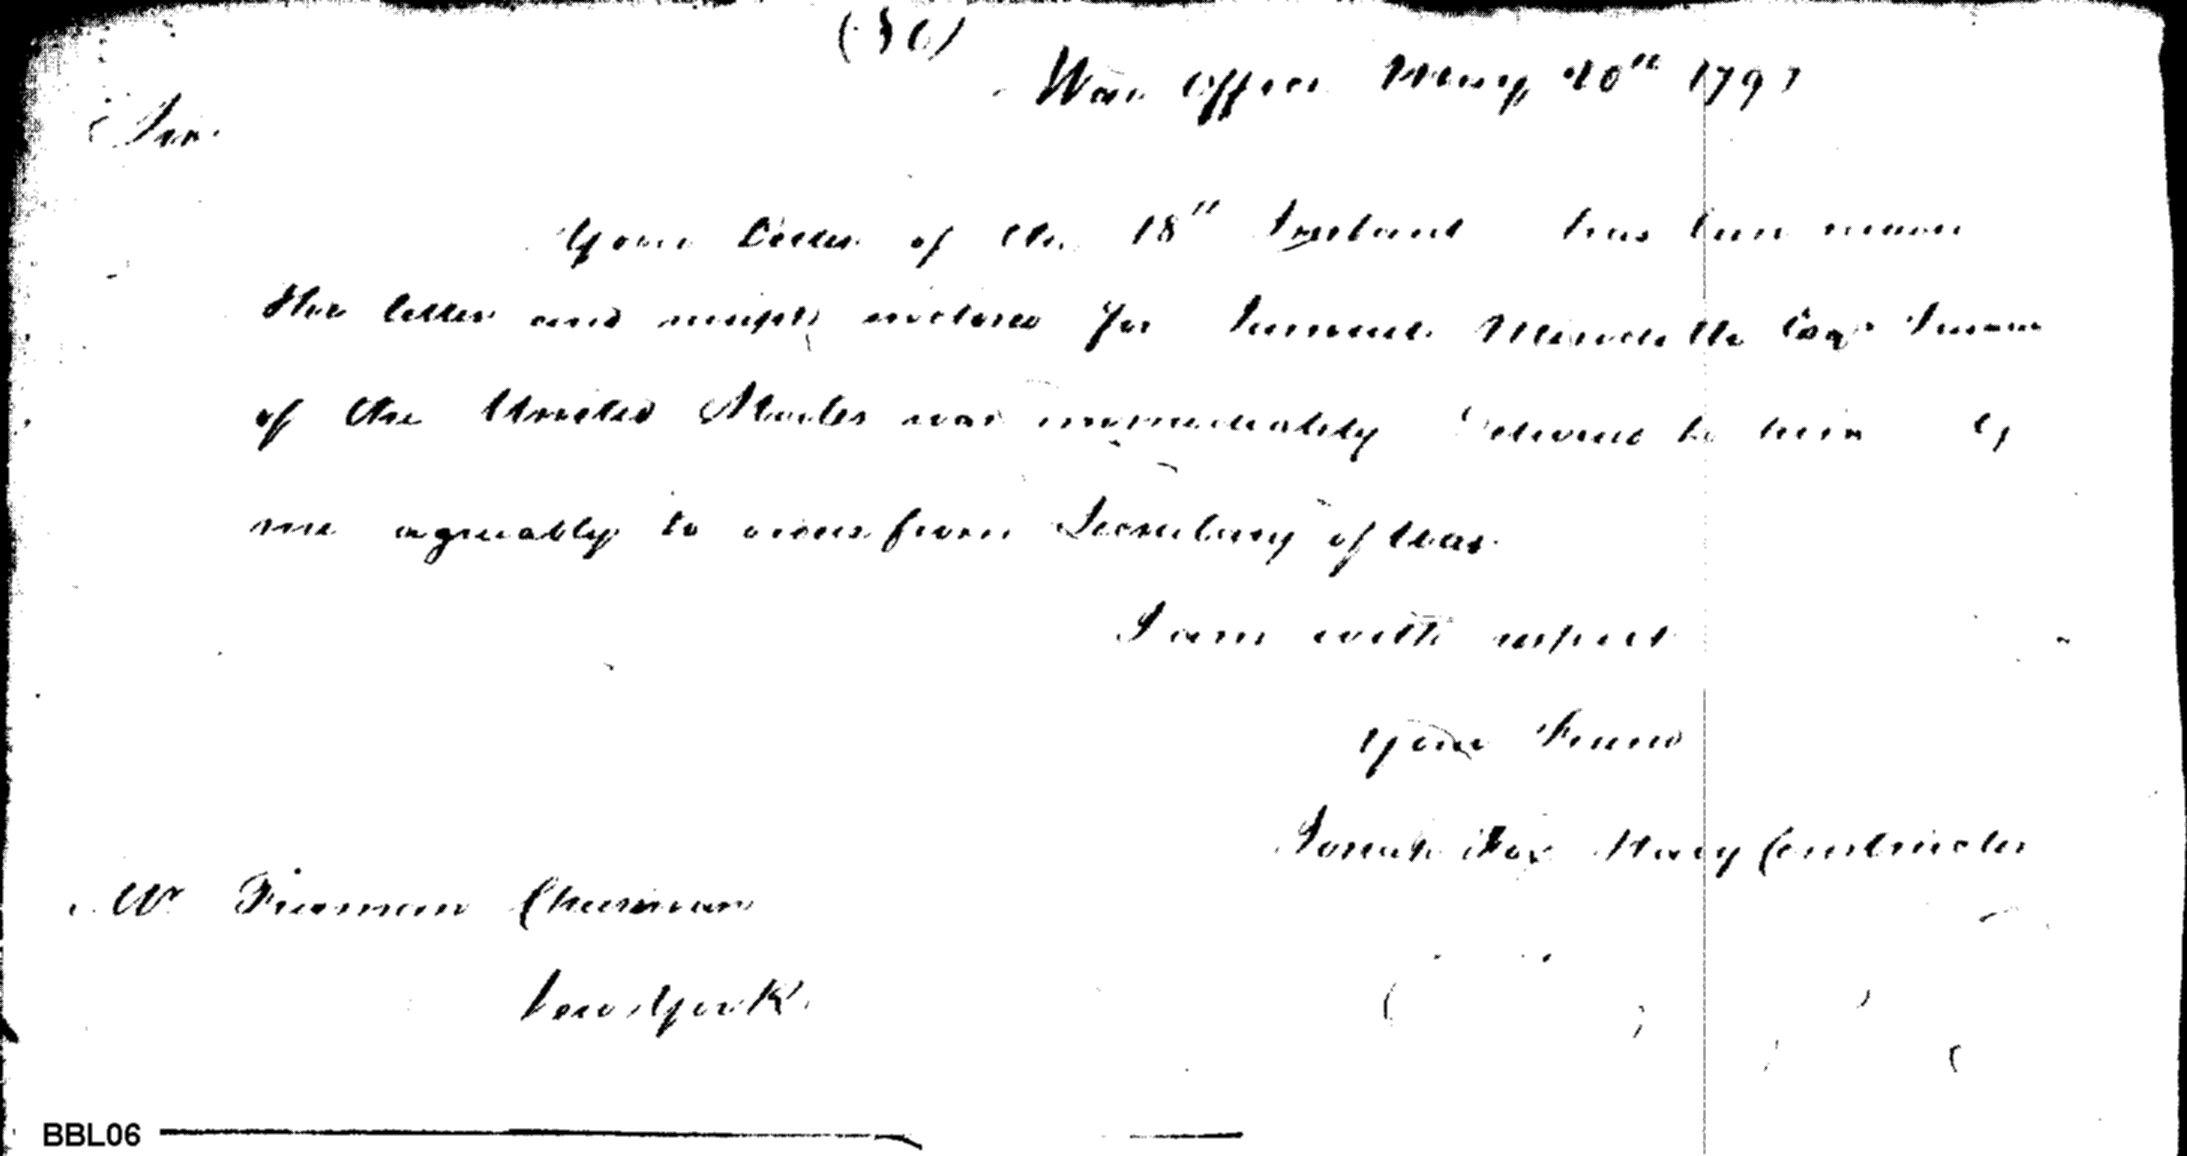 (86)
War Office May 20th 1797
Sir
Your Letter of the 18th Instant has been received
The letter and receipts inclosed for Samuel Meredith Esqr
of the United States was immediately delivered to him by
me agreeably to orders from Secretary of War
I am with respect
Your Friend
Josiah Fox Navy Constructor
Mr Freeman Cheesman
New York
BBL06